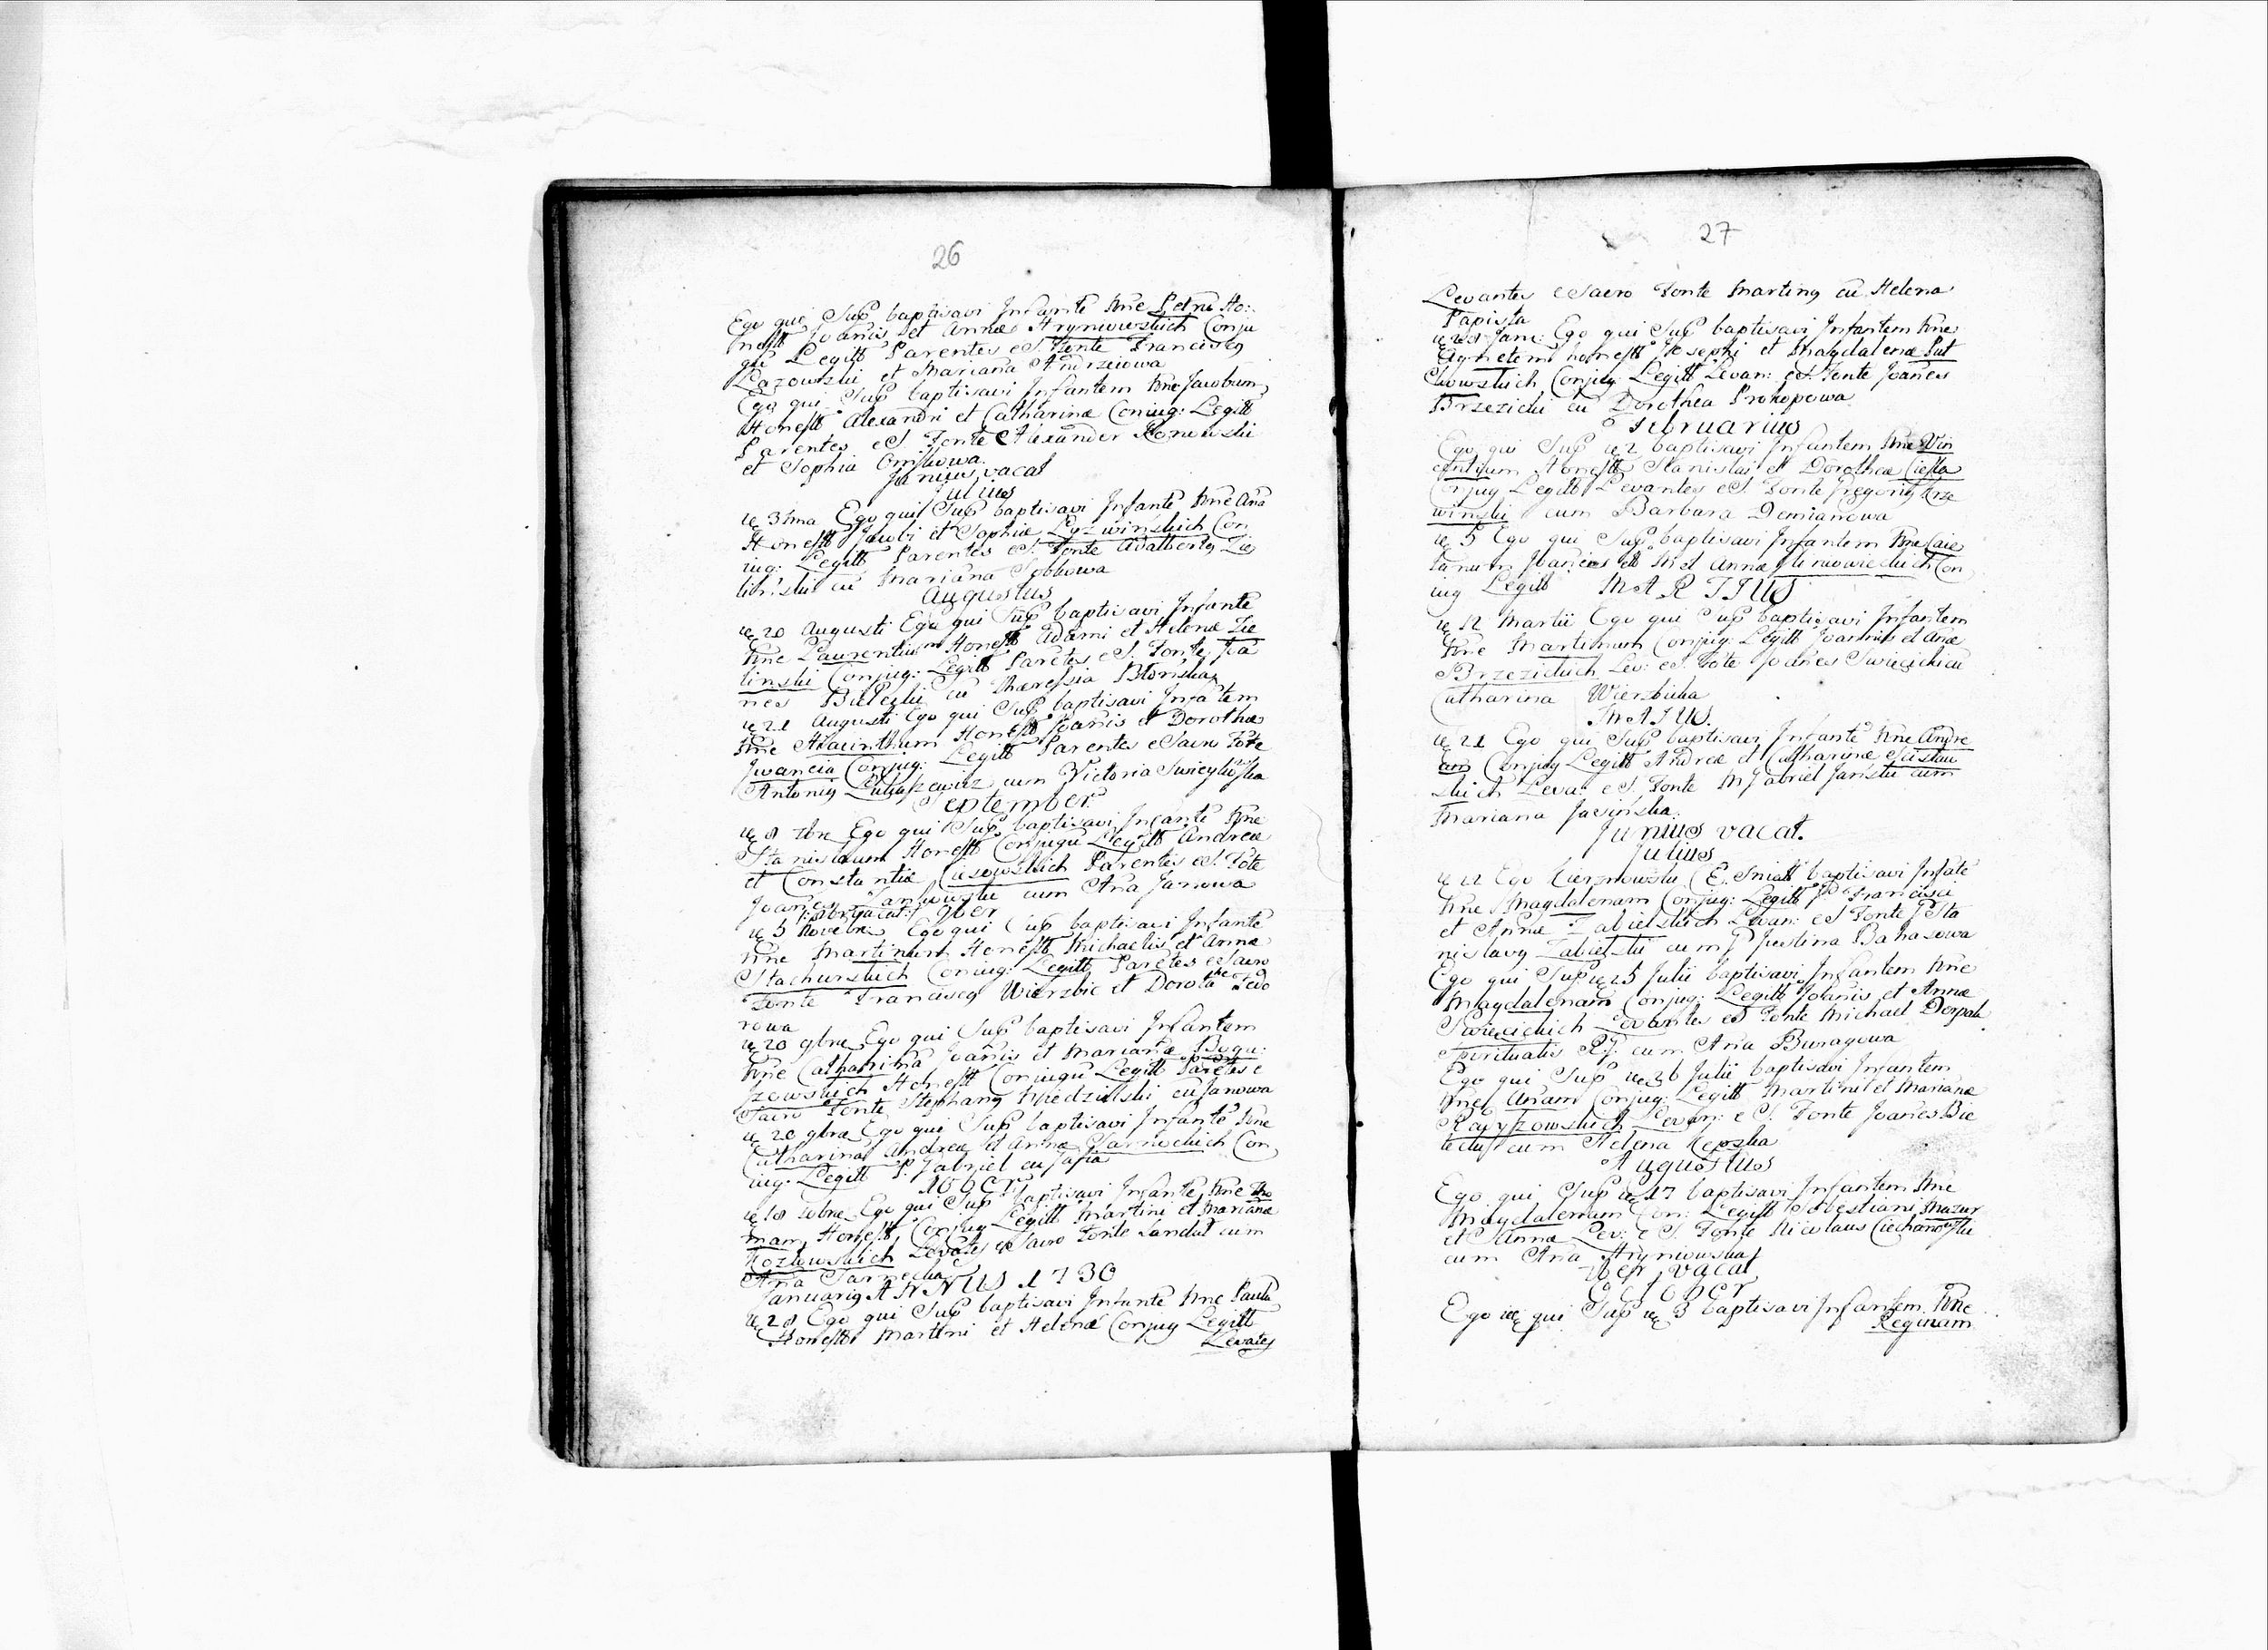 26
Ego qui Sup baptisavi Infante Nne Petru Ho:
nestt Joanis et Annæ Hryniowskich Conju
gu Legitt Parentes e S. Fonte Franciscq
Lazowski et Mariana Andrzeiowa
Ego qui Sup baptisavi Infantem Nne Jacobum
Honestt Alexandri et Catharinæ Coniug: Legitt
Parentes e S. Fonte Alexander
et Sophia
Junius vacat
Julius
ie 3tima Ego qui Sup baptisavi Infante Nne Ana
Honestt Jacobi et Sophiæ Con
iug: Legitt Parentes e S. Fonte Adalbertq Zie
liński cu Mariana Sobkowa
Augustus
ie 20 Augusti Ego qui Sup baptisavi Infante
Nne Laurentium Honestt Adami et Helenæ Zie
linski Conjug: Legitt Paretes e S. Fonte Joa
nes cu Theressia
ie 21 Augusti Ego qui Sup baptisavi Infatem
Nne Hiacinthum Honestt Joanis et Dorothæ
Iwancia Conjug: Legitt Parentes e Sacro Fote
Antoniq cum Victoria
September
ie 8 7bre Ego qui Sup baptisavi Infante Nne
Stanislaum Honestt Conjugu Legitt Andreæ
et Constantiæ Parentes e S. Fote
Joanes cum Ana Janowa
8br vacat 9ber
ie 5 Novebris Ego qui Sup baptisavi Infante
Nne Martinum Honestt Michaelis et Annæ
Stachurskich Coniug: Legitt Paretes e Sacro
Fonte Franciscq Wierzbic et Dorothe Fedo
rowa
ie 20 9bre Ego qui Sup baptisavi Infantem
Nne Catharina Joanis et Marianæ Bogu:
szowskich Honestt Coniugu Legitt Paretes e
Sacro Fonte Stephanq cu Janowa
ie 20 9bra Ego qui Sup baptisavi Infante Nne
Catharina Andreæ et Annæ Con
iug: Legitt P. Gabriel cu
10ber
ie 18 10bre Ego qui Sup baptisavi Infante Nne Tho
mam Honestt Conjug Legitt Martini et Marianæ
Kozlowskich Levates e Sacro Fonte cum
Ana
Januariq ANNUS 1730
ie 28 Ego qui Sup baptisavi Infante Nne Paulu
Honestt Martini et Helenæ Conjug Legitt
Levates
27
Levantes e Sacro Fonte Martinq cu Helena
Papista
ie 28 Janu: Ego qui Sup baptisavi Infantem Nne
Agnetem Honestt Josephi et Magdalenæ Put
kowskich Conjug: Legitt Levan: e S. Fonte Joanes
Brzezicki cu Dorothea Prokopowa
Februarius
Ego qui Sup ie 2 baptisavi Infantem Nne Vin
centium Honestt Stanislai et Dorotheæ Ciesla
Conjug Legitt Levantes e S. Fonte Gregoriq Krze
winski cum Barbara Demianowa
ie 5 Ego qui Sup baptisavi Infantem Nne Caie
tanum Joanes et Annæ Con
iug Legitt MARTIUS
ie 12 Martii Ego qui Sup baptisavi Infantem
Nne Martinum Conjug: Legitt Joannis et Anæ
Brzezickich Lev: e S. Fote Joanes Swiecicki cu
Catharina Wierzbicka
MAIUS.
ie 21 Ego qui Sup baptisavi Infante Nne Andre
am Conjug Legitt Andreæ et Catharinæ
skich Levan e S. Fonte M Gabriel Janski cum
Mariana Jasinska
Junius vacat.
Julius
ie 22 Ego baptisavi Infate
Nne Magdalenam Conjug: Legitt P Francisci
et Annæ Zabielskich Levan: e S Fonte P Sta
nislavq Zabielski cum P Justina Bakasowa
Ego qui Sup ie 25 Julii baptisavi Infantem Nne
Magdalenam Conjug: Legitt Joanis et Annæ
Swiecickich Levantes e S Fonte Michael
Spiritualis cum Ana Buragowa
Ego qui Sup ie 26 Julii baptisavi Infantem
Nne Anam Conjug: Legitt Martini et Marianæ
Levan: e S. Fonte Joanes Bie
lecki cum Helena
Augustus
Ego qui Sup ie 17 baptisavi Infantem Nne
Magdalenam Con: Legitt Sebestiani Mazur
et Annæ Lev: e S. Fonte Nicolaus Ciechanowski
cum Ana Hryniowska
7ber vacat
October
Ego qui Sup ie 3 baptisavi Infantem Nne
Reginam